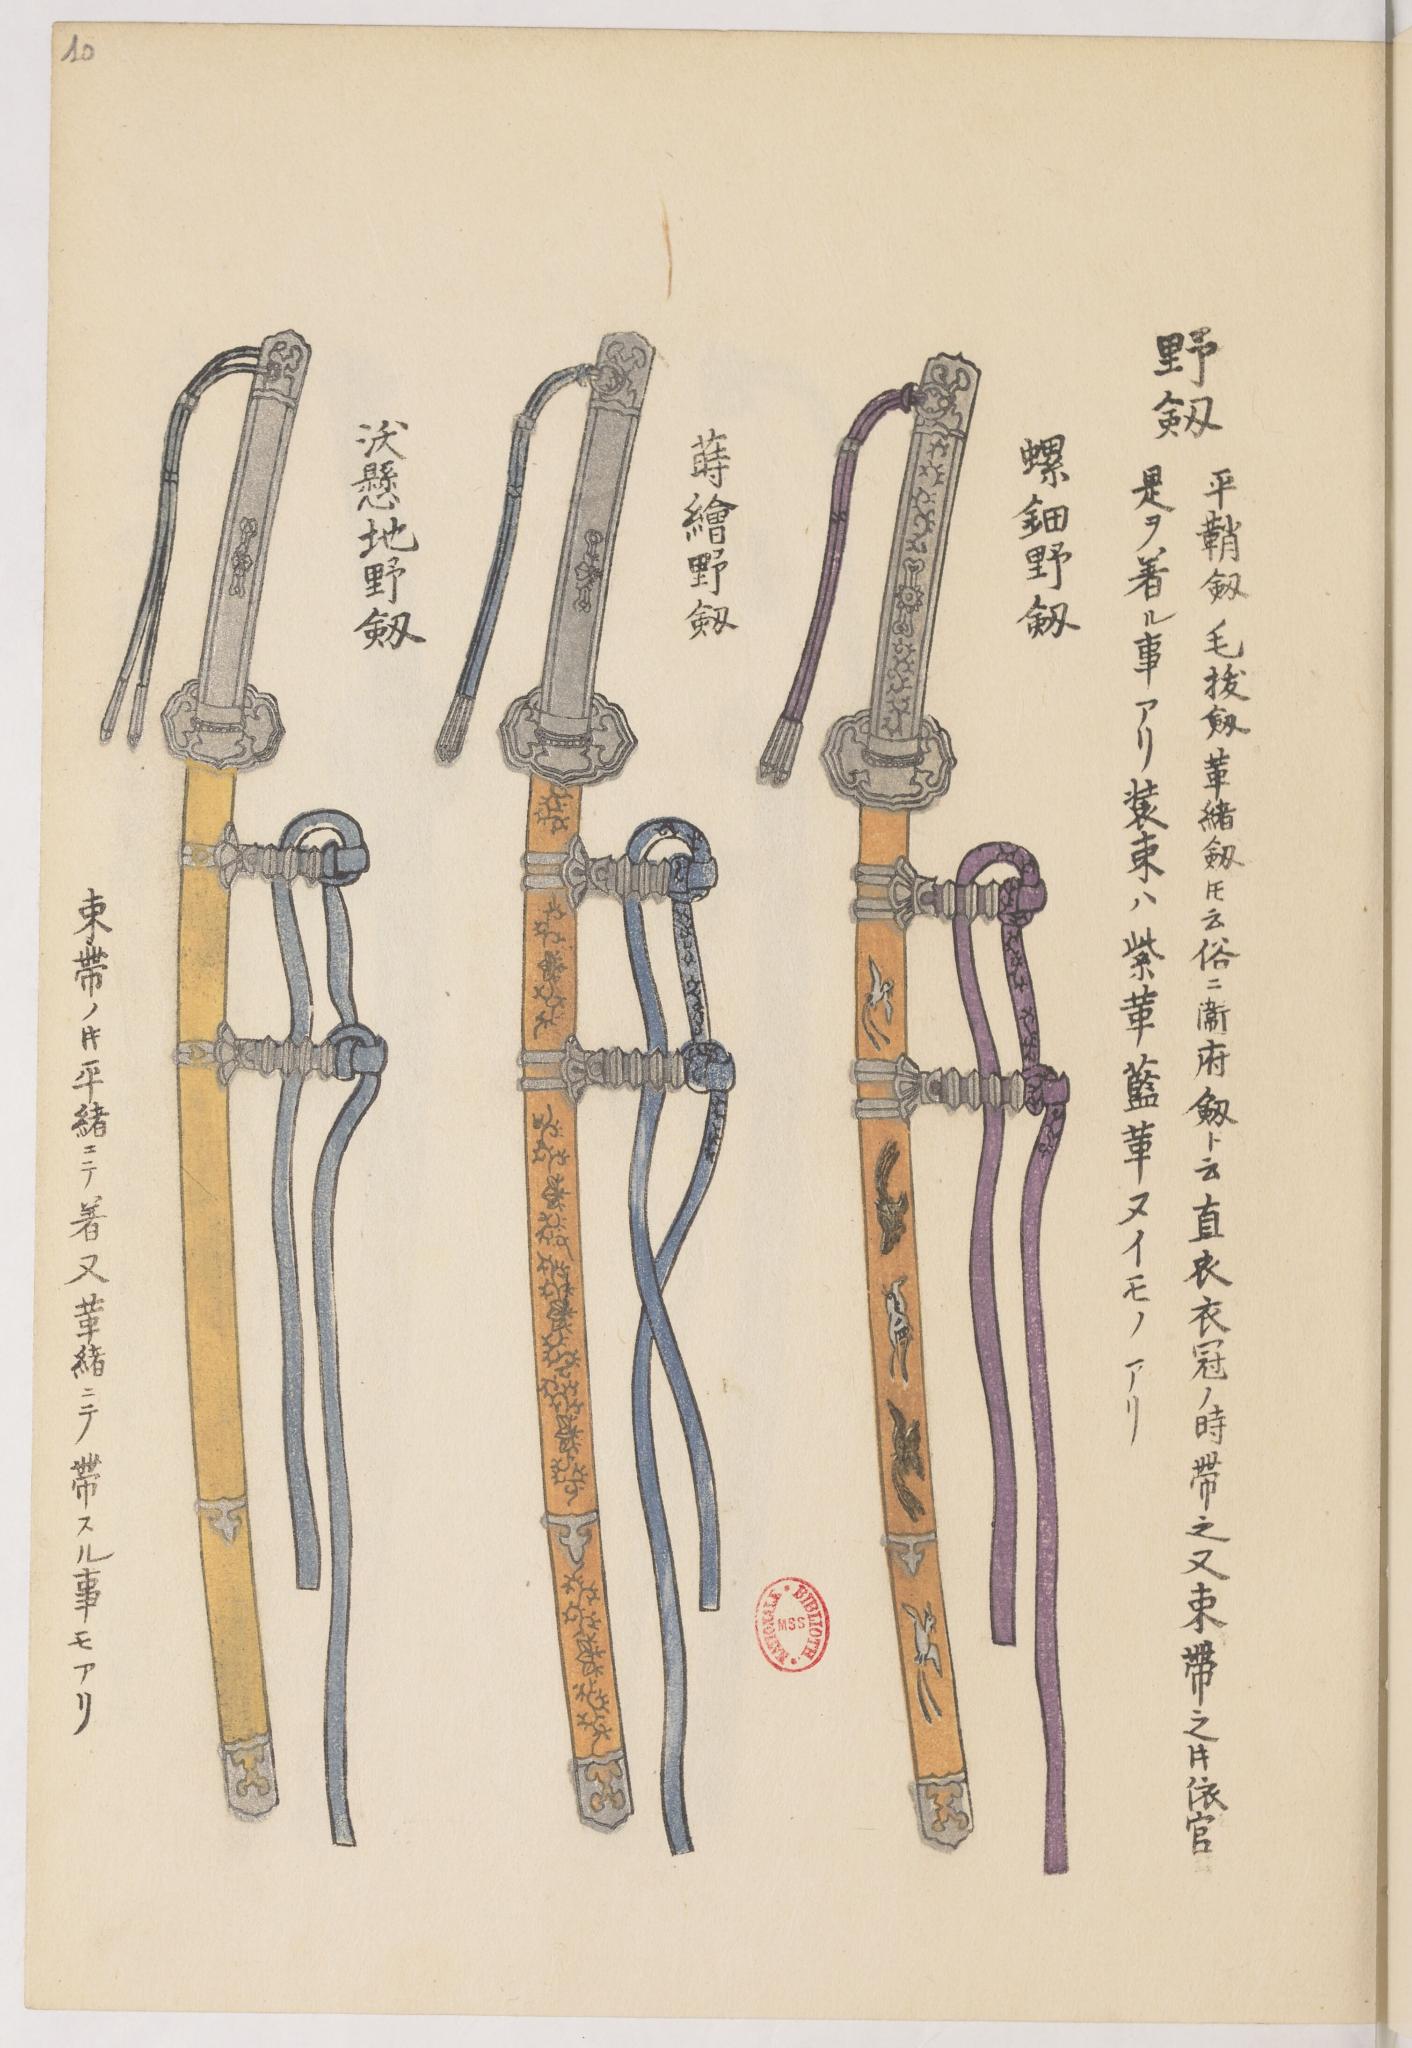 10
野劔
平鞘劔毛拔劔革緒劔トモ云俗ニ衞府劔ト云直衣衣冠ノ時帶之又束帶之時依官
是ヲ着ル事アリ裝束ハ紫革藍革ヌイモノアリ
螺鈿野劔
蒔繪野劔
沃懸地野劔
束帶ノ時平緒ニテ着又革緒ニテ帶スル事モアリ
BIBLIOTH. NATIONALE
MSS